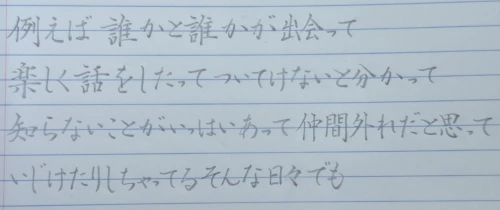 例えば 誰かと誰かが出会って
楽しく話をしたって ついてけないと分かって
知らないことがいっぱいあって 仲間外れだと思って
いじけたりしちゃってるそんな日々でも